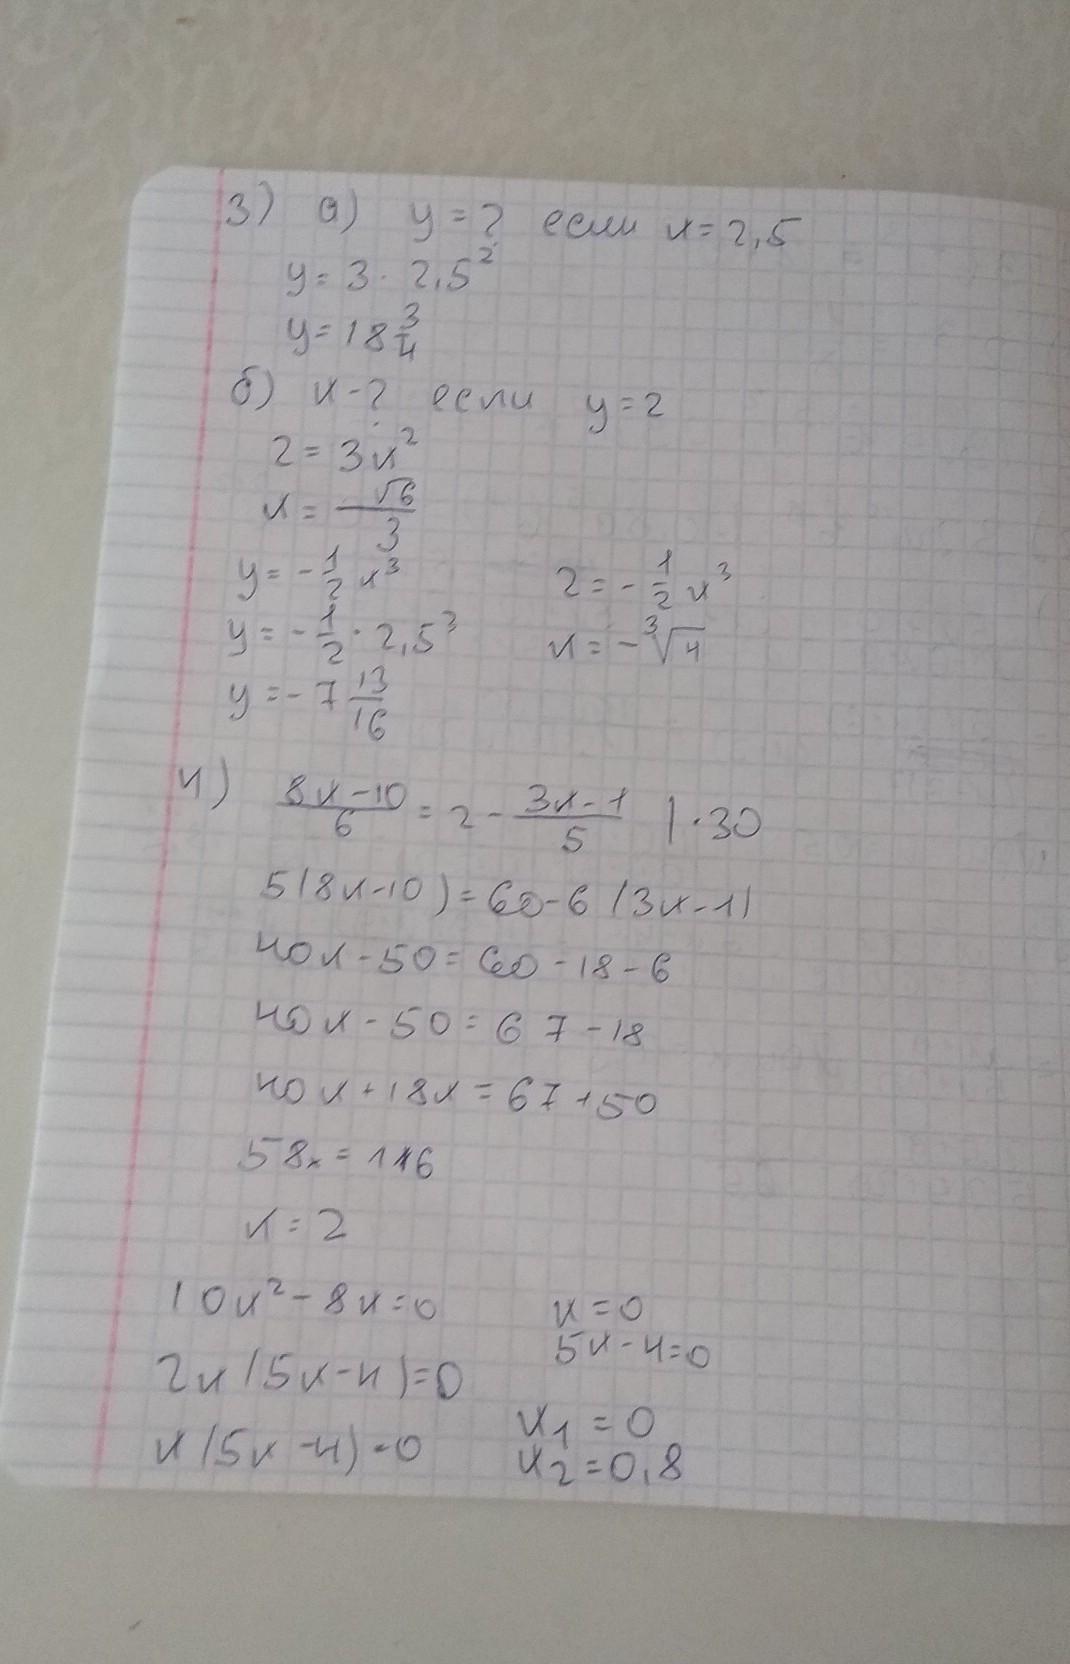 3) а) y = ? если x = 2,5
y = 3 · 2,5²
y = 18 3/4
б) x - ? если y = 2
2 = 3x²
x = -√6/3
y = -1/2 x³
2 = -1/2 x³
y = -1/2 · 2,5³
x = -³√4
y = -7 13/16
4) (8x-10)/6 = 2 - (3x-1)/5 | · 30
5(8x-10) = 60-6(3x-1)
40x - 50 = 60 - 18 - 6
40x - 50 = 67 - 18
40x + 18x = 67 + 50
58x = 116
x = 2
10x² - 8x = 0
x = 0
5x - 4 = 0
2x(5x-4) = 0
x₁ = 0
x(5x-4) = 0
x₂ = 0,8